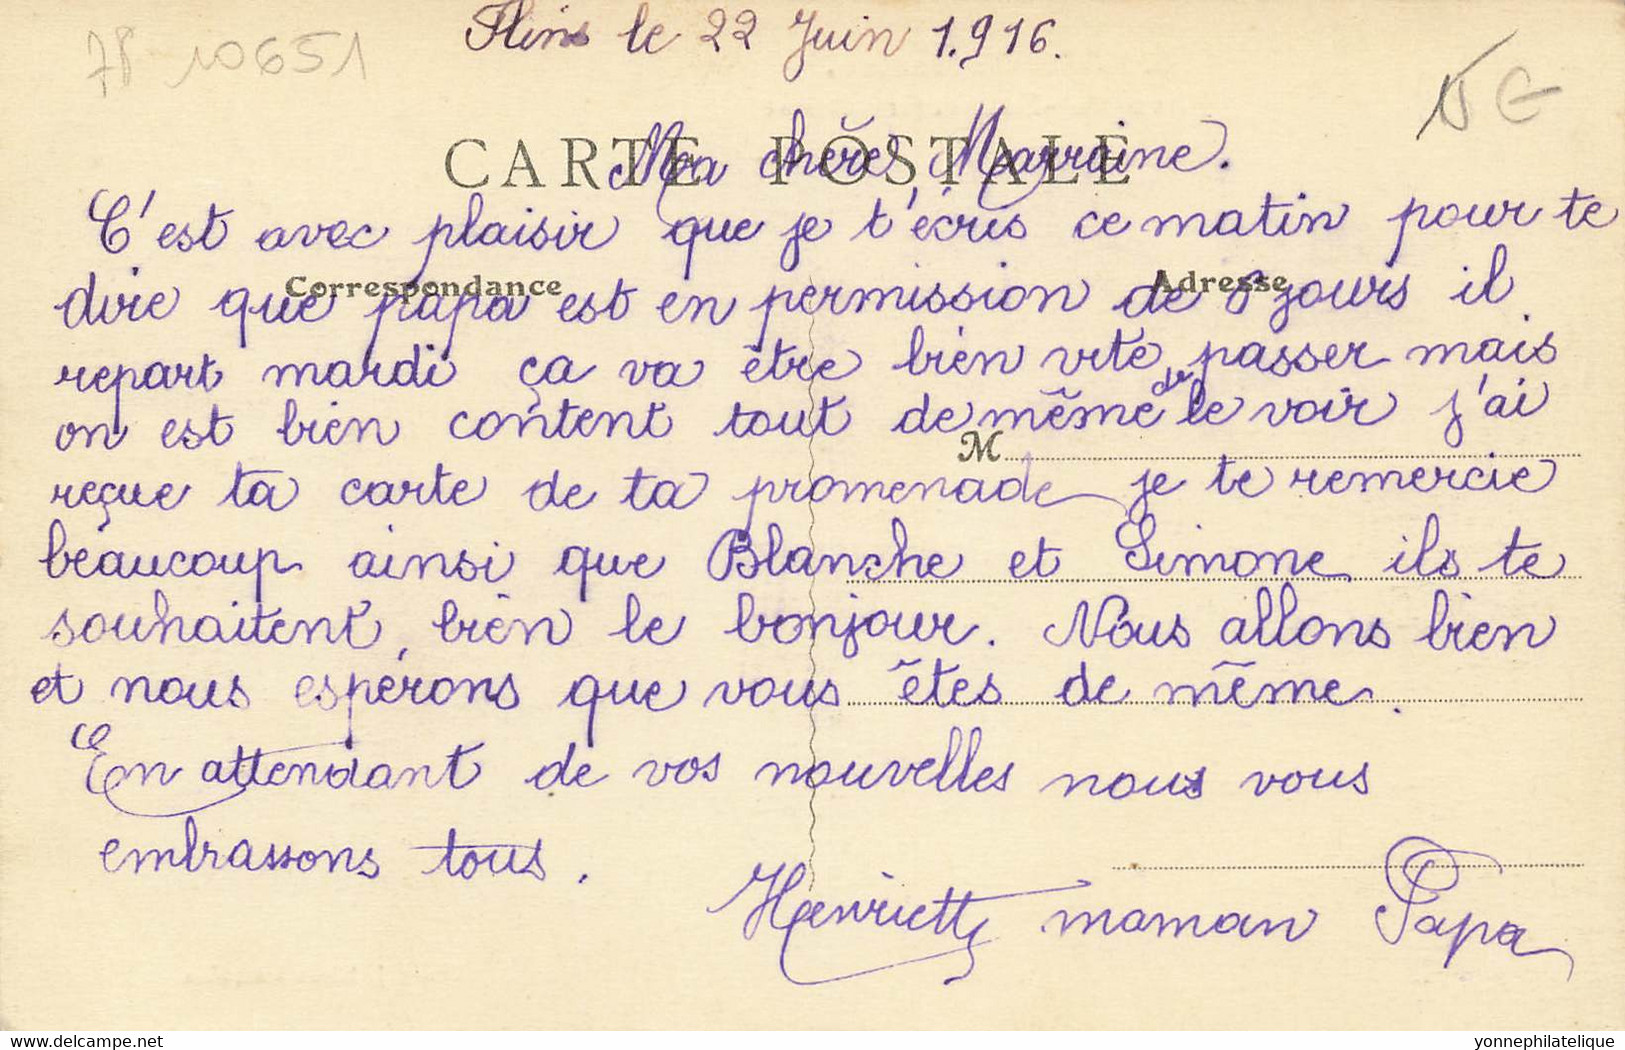 78 10651
Flins le 22 Juin 1.916.
CARTE POSTALE
Ma chère Marraine.
C'est avec plaisir que je t'écris ce matin pour te
Correspondance
Adresse
dire que papa est en permission de 8 jours il
repart mardi ça va être bien vite passer mais
on est bien content tout de même de le voir j'ai
M
reçue ta carte de ta promenade je te remercie
beaucoup ainsi que Blanche et Simone ils te
souhaitent, bien le bonjour. Nous allons bien
et nous espérons que vous êtes de même.
En attendant de vos nouvelles nous vous
embrassons tous.
Henriette maman Papa
delcampe.net
yonnephilatelique